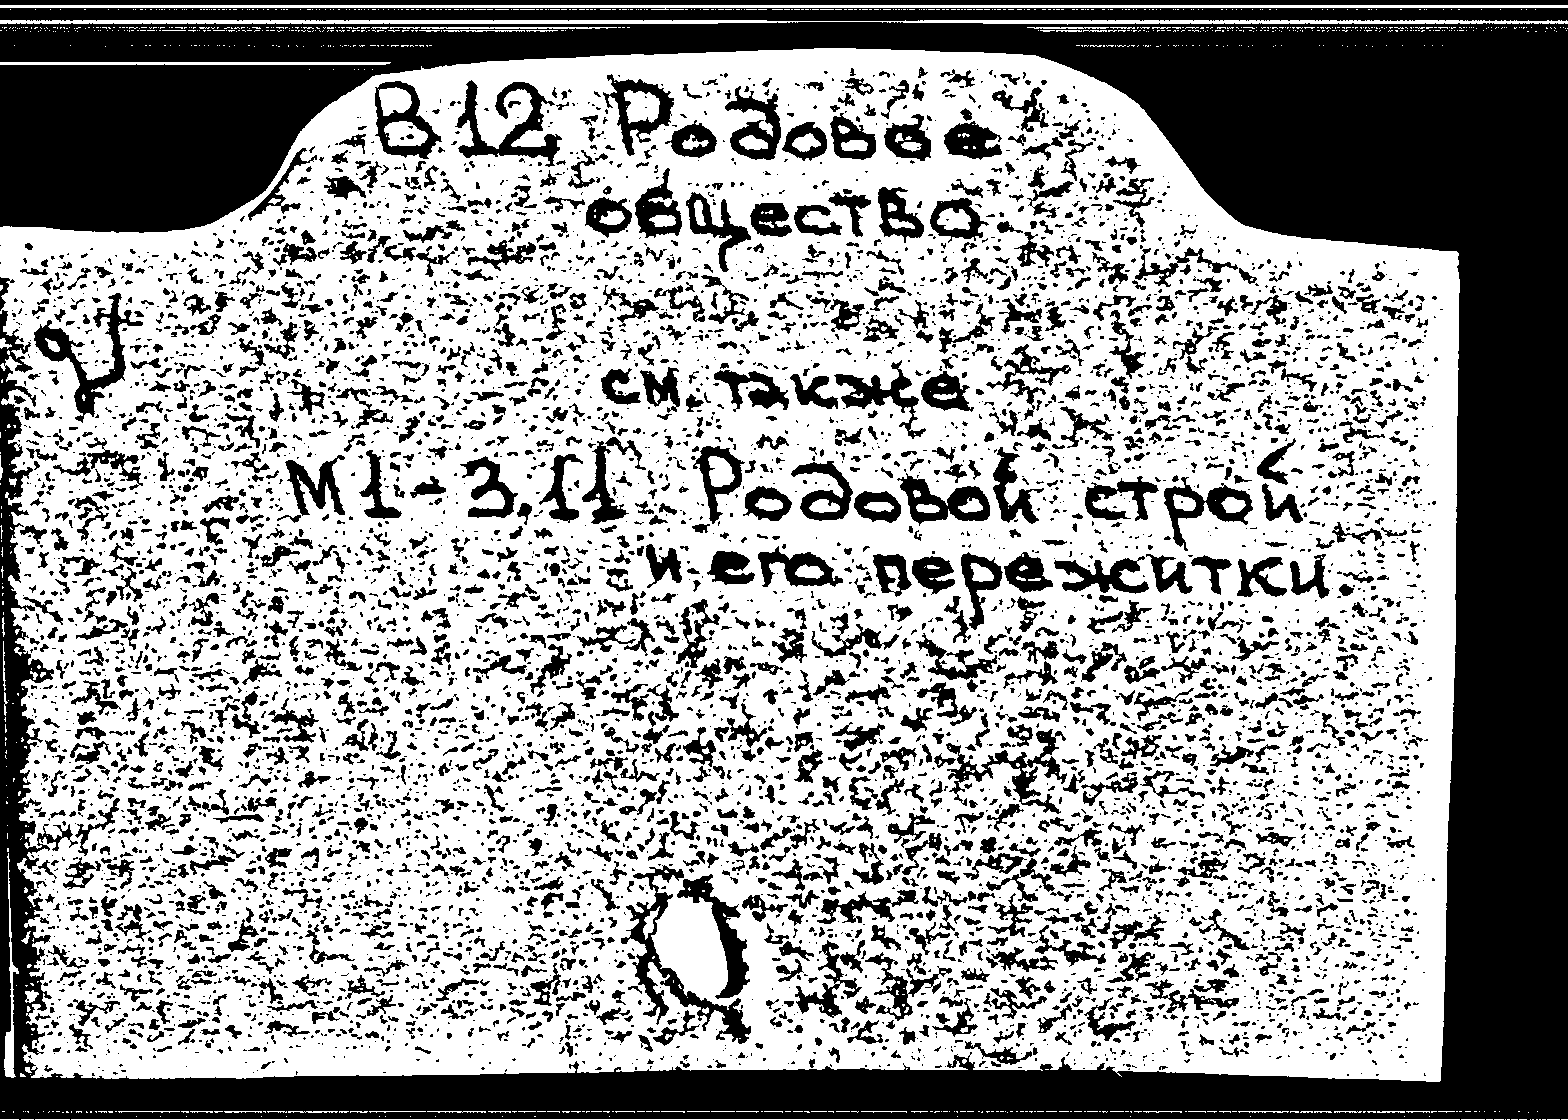 В12 Родовое
общество
см. также
М1-3.11 Родовой строй
и его пережитки.